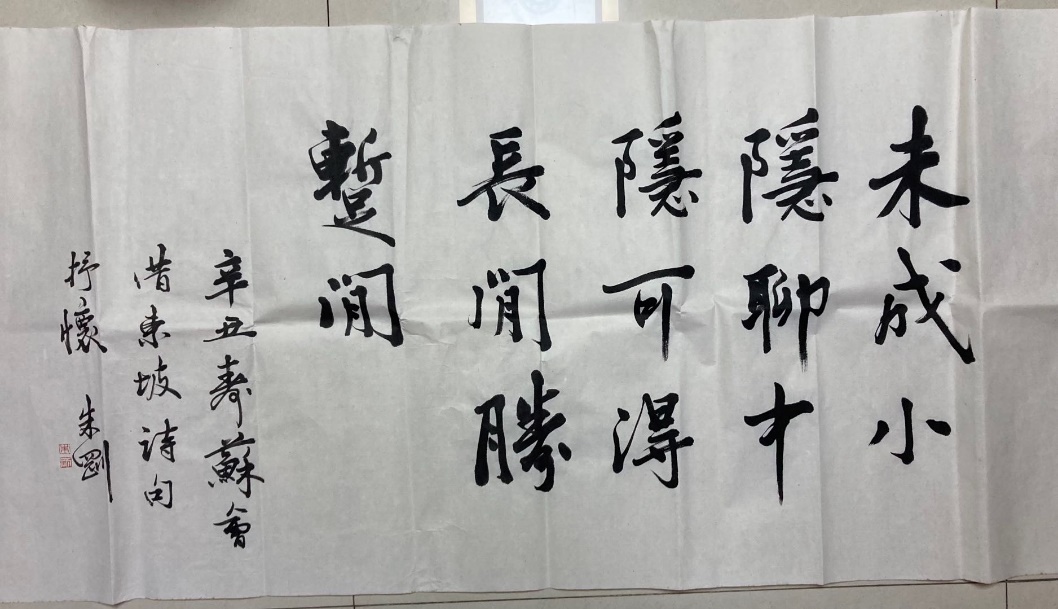 未成小
隱聊中
隱可得
長閒勝
蹔閒
辛丑壽蘇會
借東坡詩句
抒懷 朱剛